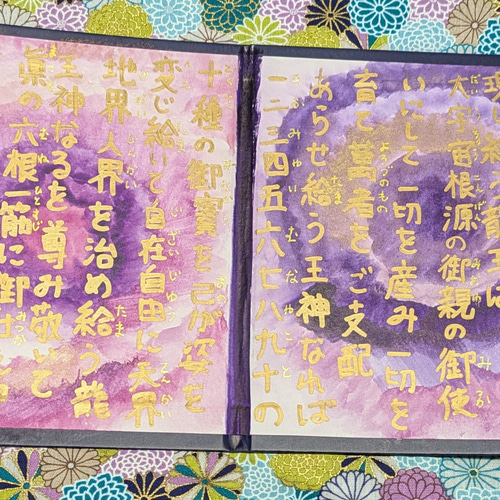 大宇宙根源の御親の御使
いにして一切を産み一切を
育て萬者をご支配
あらせ給う王神なれば
一二三四五六七八九十の
十種の御寶を己が姿を
変じ給いて自在自由に天界
地界人界を治め給う龍
王神なるを尊み敬いて
眞の六根一筋に御仕